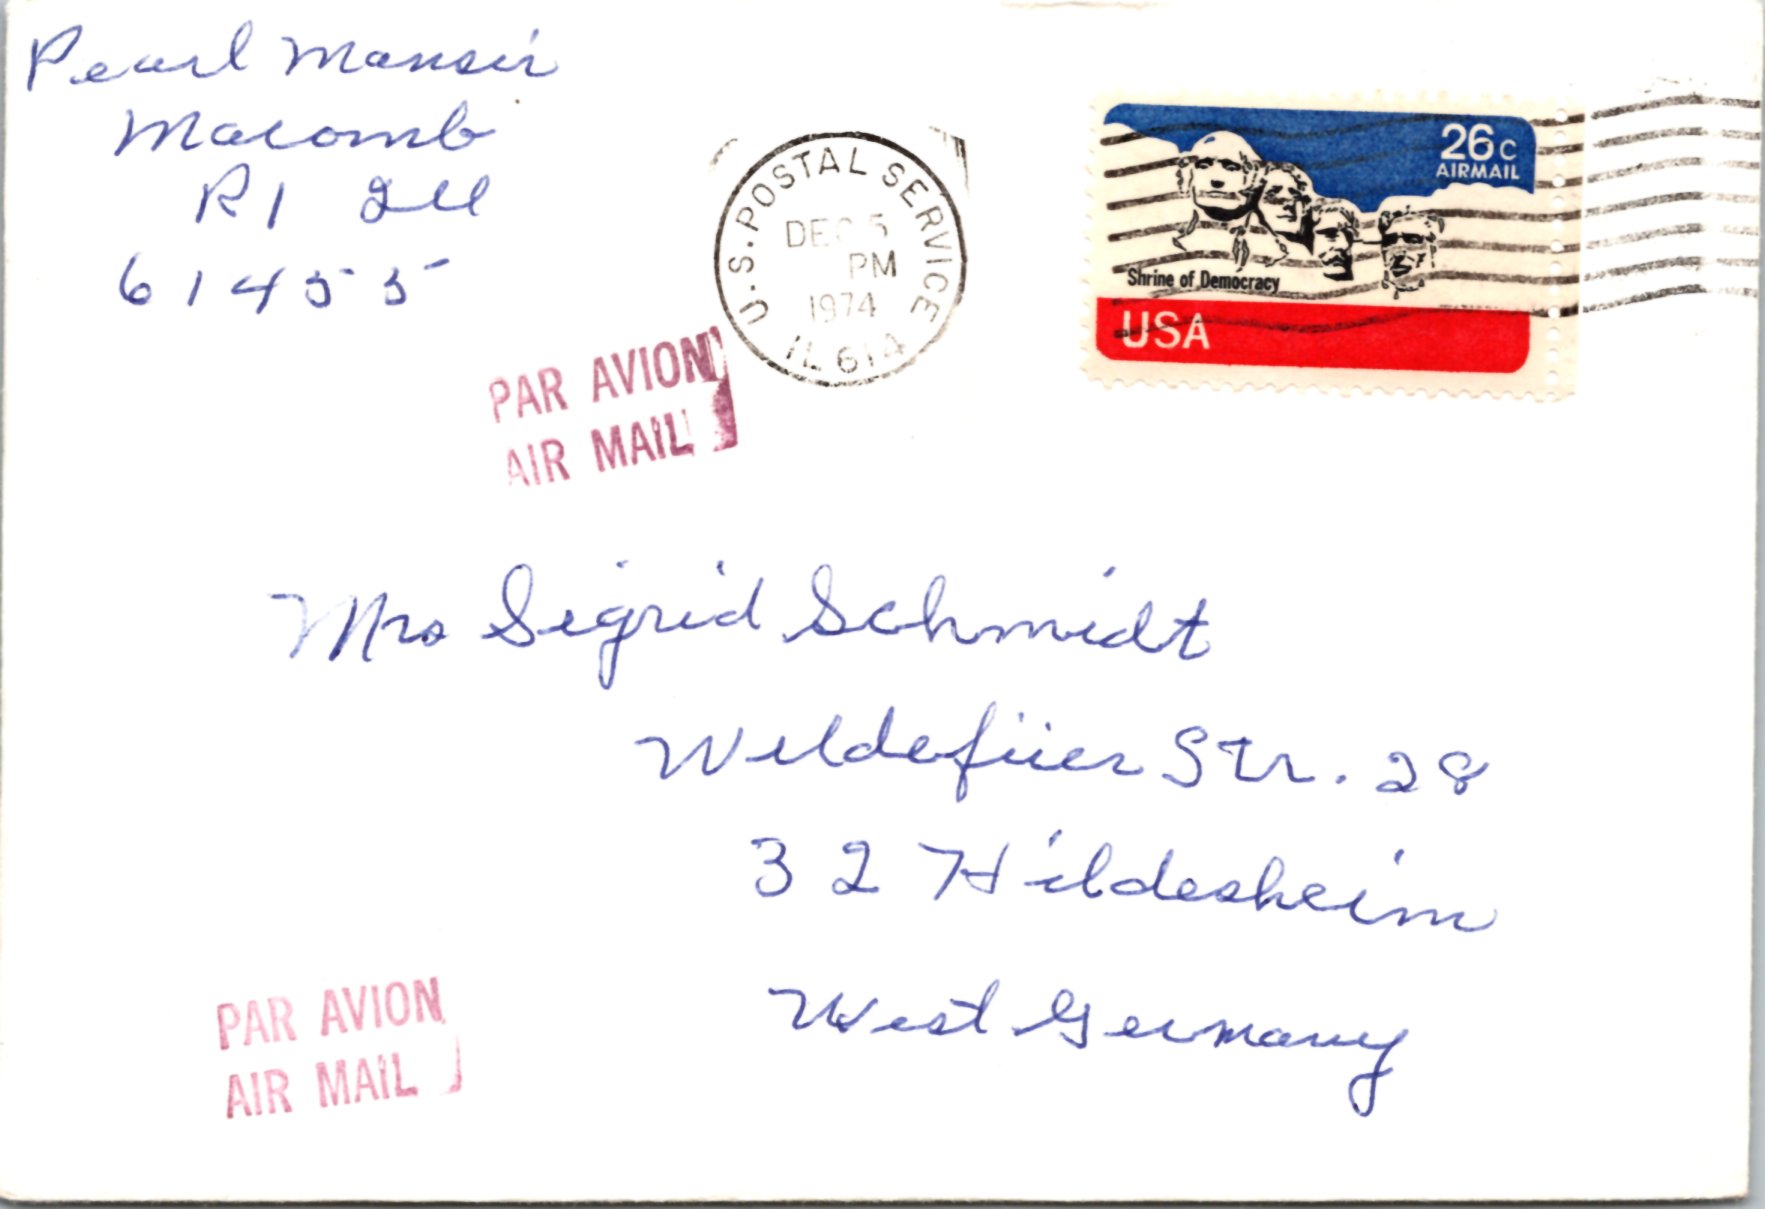 Pearl Mansir
Macomb
R1 Ill
61455
U.S. POSTAL SERVICE
DEC 5
PM
1974
IL 614
26c
AIRMAIL
Shrine of Democracy
USA
PAR AVION
AIR MAIL
Mrs Sigrid Schmidt
Wildefüer Str. 28
32 Hildesheim
West Germany
PAR AVION
AIR MAIL